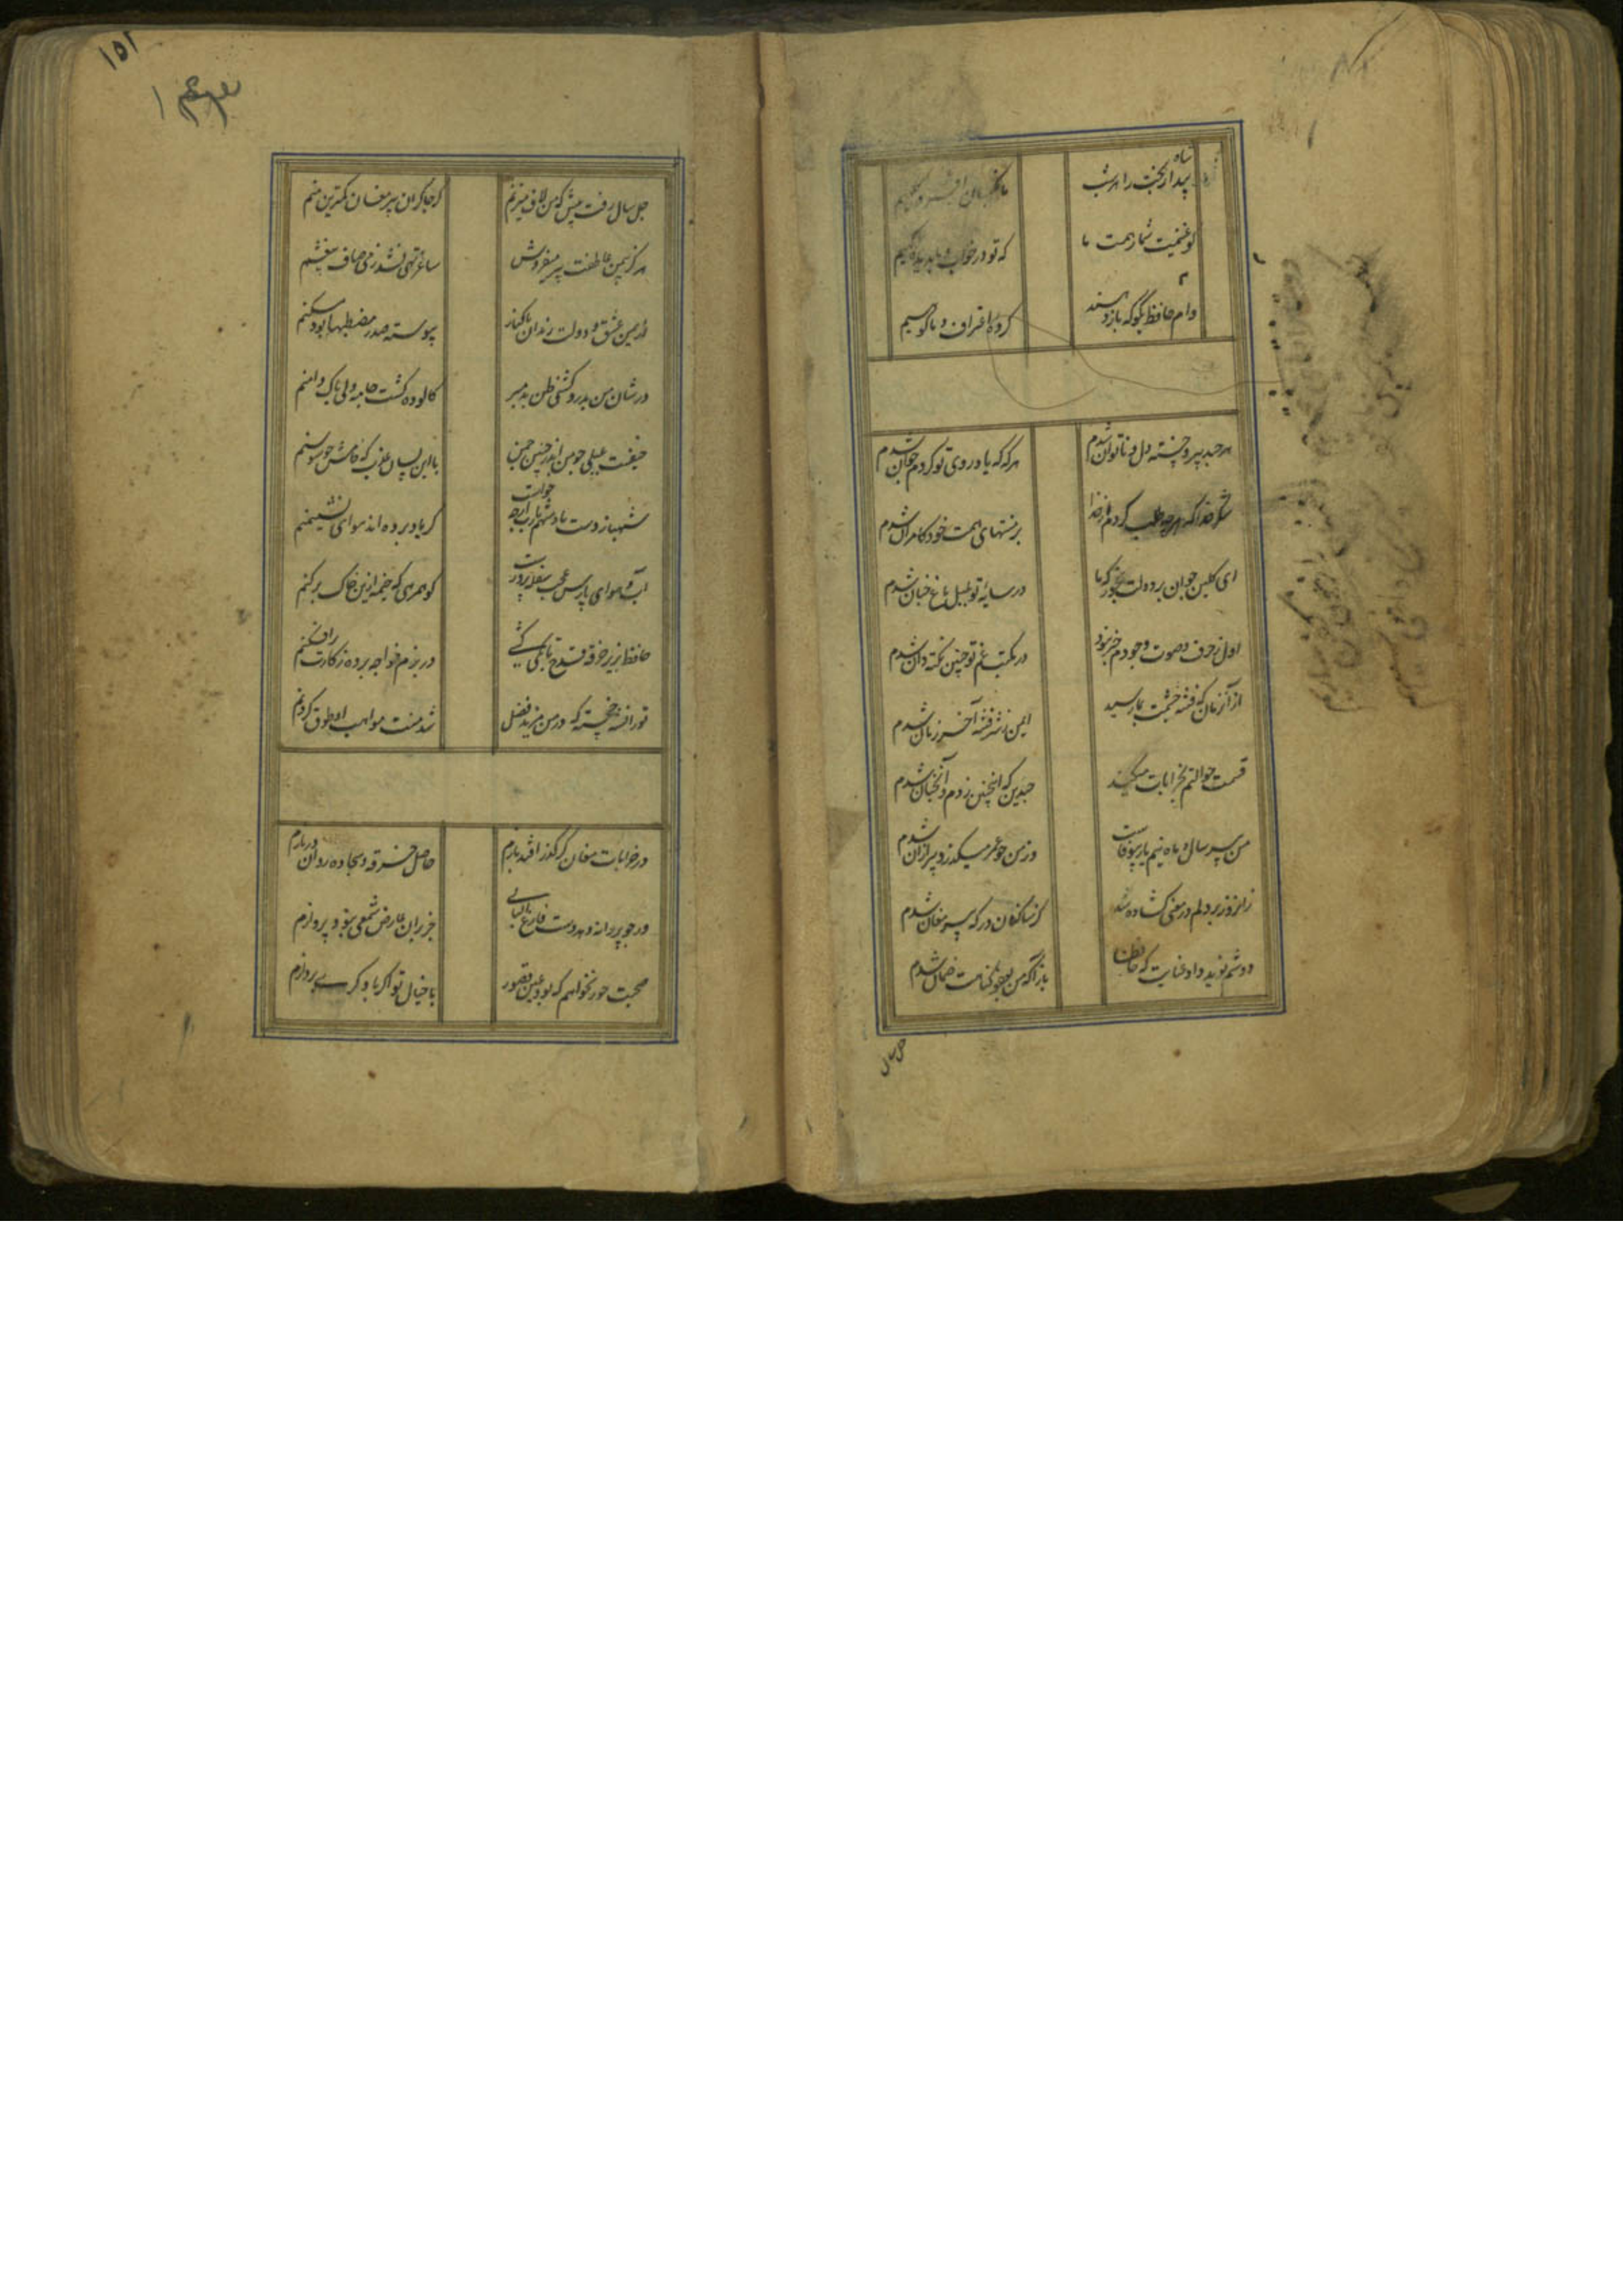 شاه بیدار بخت را هر شب
ما نگهبان افسر و کلهیم
گو غنیمت شمار همت ما
که تو در خواب و ما بدیده گهیم
وام حافظ بگو که باز دهند
کرده اعتراف و ما گوهیم
هر چند پیر و خسته دل و ناتوان شدم
هر گه که یاد روی تو کردم جوان شدم
شکر خدا که هر چه طلب کردم از خدا
بر منتهای همت خود کامران شدم
ای گلبن جوان بر دولت بخور که ما
در سایه تو بلبل باغ جنان شدم
اول ز حرف و صوت وجودم خبر نبود
در مکتب غم تو چنین نکته دان شدم
از آن زمان که فتنه چشمت بما رسید
ایمن ز شر فتنه آخر زمان شدم
قسمت حوالتم بخرابات میکند
چندین که اینچنین زدم و آنچنان شدم
من پیر سال و ماه نیم یار بیوفاست
وز من چو عمر میگذرد پیر از آن شدم
زانروز بر دلم در معنی گشاده شد
کز ساکنان درگه پیر مغان شدم
دوشم نوید داد عنایت که حافظا
باز آ که من بعفو گناهت ضمان شدم
چل سال
۱۵۱
چل سال رفت بیش که من لاف میزنم
کز چاکران پیر مغان کمترین منم
هرگز بیمن عاطفت پیر میفروش
ساغر تهی نشد ز می صاف بیغشم
از یمن عشق و دولت رندان پاکباز
پیوسته صدر مصطبها بود مسکنم
در شان من بدردکشی ظن بد مبر
کالوده گشت جامه ولی پاک دامنم
حیفست بلبلی چو من اندر چنین چمن
با این لسان عذب که خامش چو سوسنم
شهباز دست پادشهم یا رب از چه جو است
کز یاد برده اند هوای نشیمنم
آب و هوای پارس عجب سفله پرور است
کو همرهی که خیمه ازین خاک برکنم
حافظ بزیر خرقه قدح تا بکی کشی
در بزم خواجه پرده ز کارت برافکنم
تورانشه خجسته که در من یزید فضل
شد منت مواهب او طوق گردنم
در خرابات مغان گر گذر افتد بازم
حاصل خرقه و سجاده روان در بازم
ور چو پروانه دهد دست فراغ البالی
جز بران عارض شمعی نبود پروازم
صحبت حور نخواهم که بود عین قصور
با خیال تو اگر با دگری پردازم